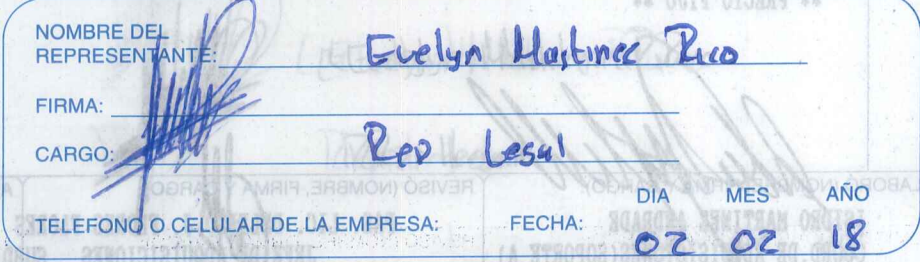 NOMBRE DEL
REPRESENTANTE: Evelyn Martinez Rico
FIRMA:
CARGO: Rep Legal
DIA MES AÑO
TELEFONO O CELULAR DE LA EMPRESA: FECHA: 02 02 18